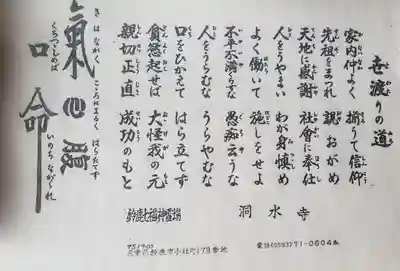 世渡りの道
家内仲よく 揃うて信仰
先祖をまつれ 親おがめ
天地に感謝 社会に奉仕
人をうやまい わが身慎め
よく働いて 施しをせよ
不平不満らすな 愚痴云うな
人をうらむな うらやむな
口をひかえて はら立てず
貪慾起せば 大怪我の元
親切正直 成功のもと
氣心腹
きはながく
こころはまるく
はらたてず
口命
くちつつしめば
いのちながかれ
洞水寺
鈴鹿大福神霊場
電話(0593)71-0604番
〒519-03
三重県鈴鹿市小社町178番地